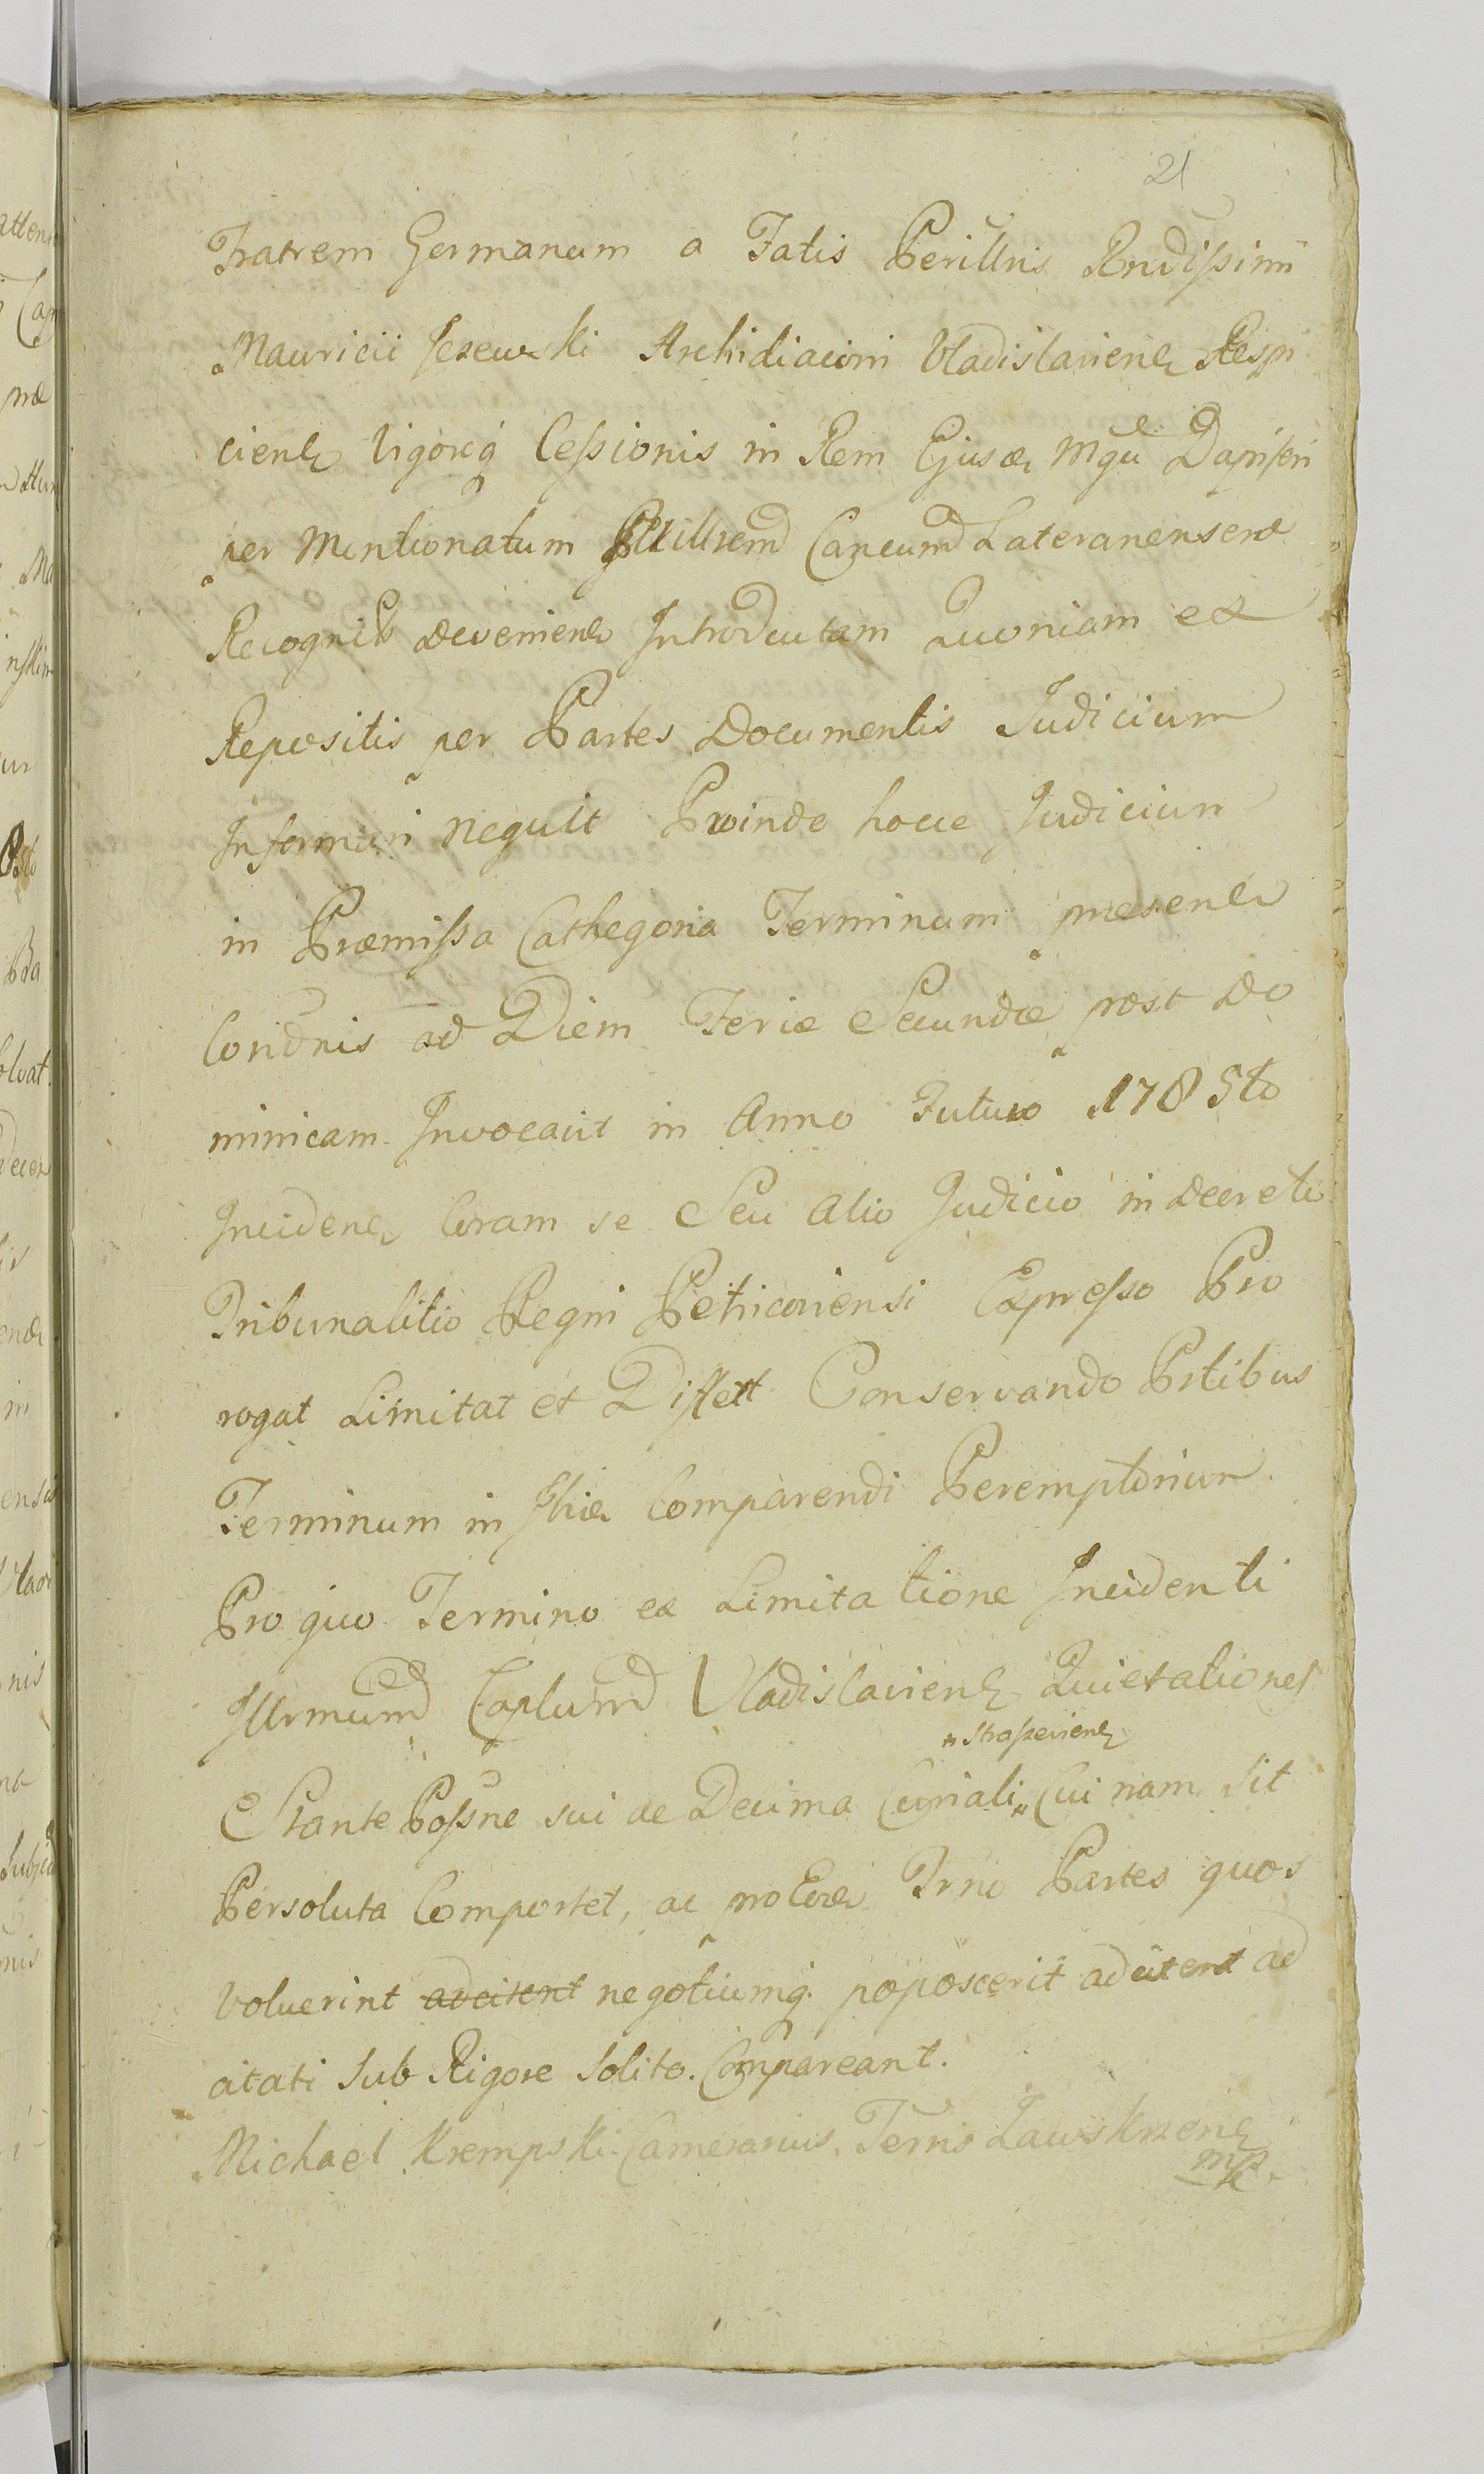 21
Fratrem Germanum a Fatis Perillris Rndissimi
Mauricii Jezewski Archidiaconi Vladislavien Respi
cien Vigoreq Cessionis in Rem Ejusd Mgci Dapiferi
per Mentionatum Perillrem Cancum Lateranensem
Recognit devenien Introductam Quoniam ex
Repositis per Partes Documentis Judicium
Informari nequit Proinde hocce Judicium
in Præmissa Cathegoria Terminum præsen
Condnis ad Diem Feriæ Secundæ post Do
minicam Invocavit in Anno Futuro 1785to
Inciden Coram se Seu alio Judicio in Decreto
Tribunalitio Regni Petricoviensi Expresso Pro
rogat Limitat et Differt Conservando Prtibus
Terminum in Comparendi Peremptorium.
Pro quo Termino ex Limitatione Incidenti
Illrmum Caplum Vladislavien Quietationes
" Straszevien
Stante Possne sui de Decima Cujnali " Cui nam sit
Persoluta Comportet, ac pro Eod Trno Partes quos
Voluerint adcitent negotiumq. poposcerit adcitent ad
citati Sub Rigore Solito. Compareant.
Michael Krempski Camerarius Terris Lawskrzen
mp.